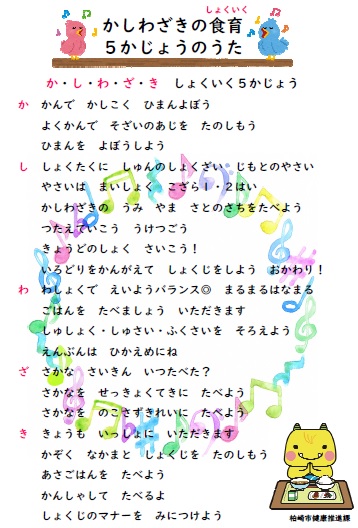 しょくいく
かしわざきの食育
5かじょうのうた
か・し・わ・ざ・き　しょくいく5かじょう
か　かんで　かしこく　ひまんよぼう
よくかんで　そざいのあじを　たのしもう
ひまんを　よぼうしよう
し　しょくたくに　しゅんのしょくざい・じもとのやさい
やさいは　まいしょく　こざら1・2はい
かしわざきの　うみ　やま　さとのさちをたべよう
つたえていこう　うけつごう
きょうどのしょく　さいこう！
いろどりをかんがえて　しょくじをしよう　おかわり！
わ　わしょくで　えいようバランス◎　まるまるはなまる
ごはんを　たべましょう　いただきます
しゅしょく・しゅさい・ふくさいを　そろえよう
えんぶんは　ひかえめにね
ざ　さかな　さいきん　いつたべた？
さかなを　せっきょくてきに　たべよう
さかなを　のこさずきれいに　たべよう
き　きょうも　いっしょに　いただきます
かぞく　なかまと　しょくじを　たのしもう
あさごはんを　たべよう
かんしゃして　たべるよ
しょくじのマナーを　みにつけよう
柏崎市健康推進課